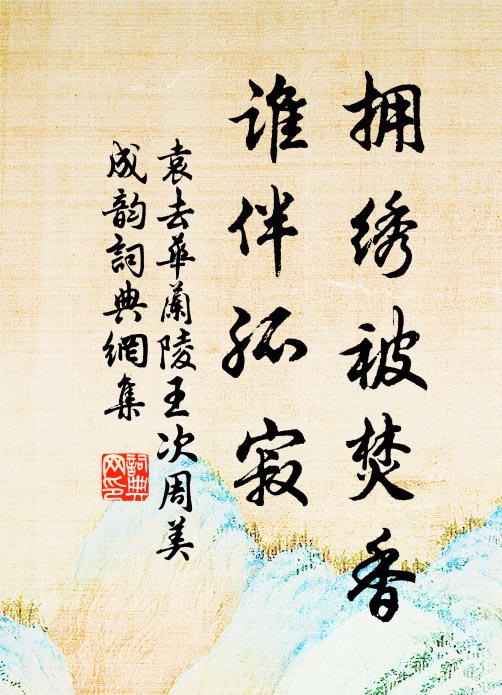 拥绣被焚香
谁伴孤寂
袁去華蘭陵王次周美
成韵詞典網集
詞典
网印